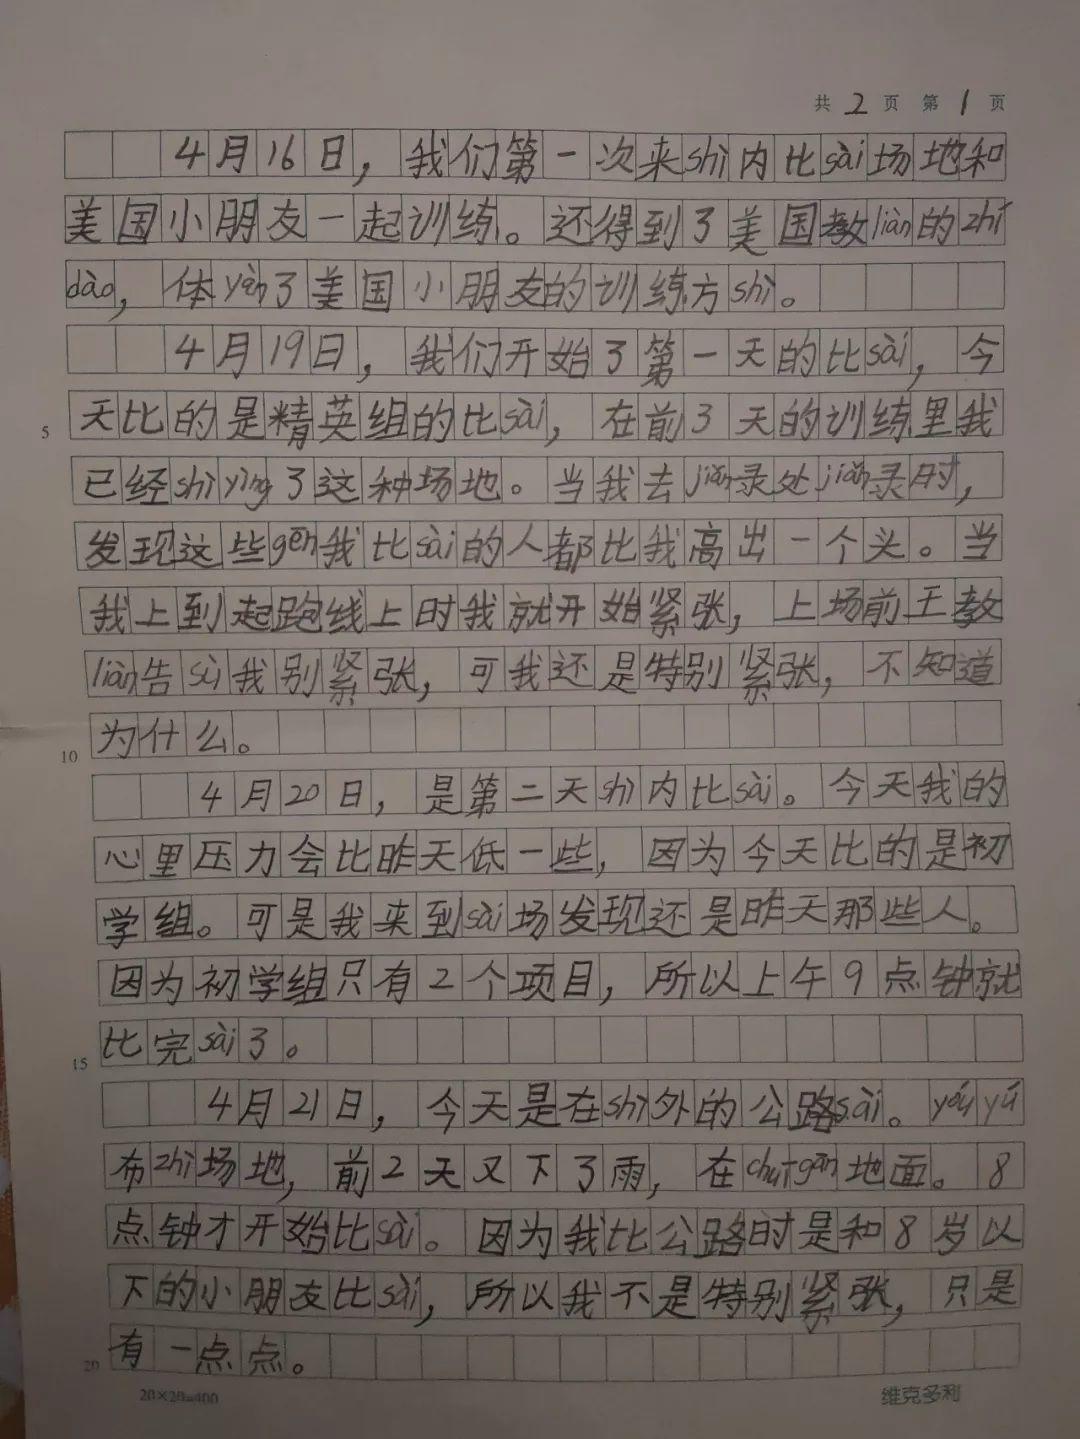 共 2 页 第 1 页
4月16日，我们第一次来shì内比sài场地和
美国小朋友一起训练。还得到了美国教liàn的zhǐ
dǎo，体yàn了美国小朋友的训练方shì。
4月19日，我们开始了第一天的比sài，今
天比的是精英组的比sài，在前3天的训练里我
5
已经shì yìng了这种场地。当我去jiǎn录处jiǎn录时，
发现这些gēn我比sài的人都比我高出一个头。当
我上到起跑线上时我就开始紧张，上场前王教
liàn告sù我别紧张，可我还是特别紧张，不知道
为什么。
10
4月20日，是第二天shì内比sài。今天我的
心里压力会比昨天低一些，因为今天比的是初
学组。可是我来到sài场发现还是昨天那些人。
因为初学组只有2个项目，所以上午9点钟就
比完sài了。
15
4月21日，今天是在shì外的公路sài。yóu yú
布zhì场地，前2天又下了雨，在chuī gān地面。8
点钟才开始比sài。因为我比公路时是和8岁以
下的小朋友比sài，所以我不是特别紧张，只是
有一点点。
20
20×20=400 维克多利